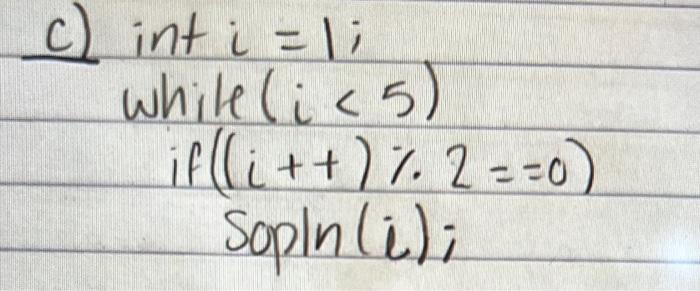 c) int i = 1;
while(i < 5)
if((i++) % 2 ==0)
Sopln(i);